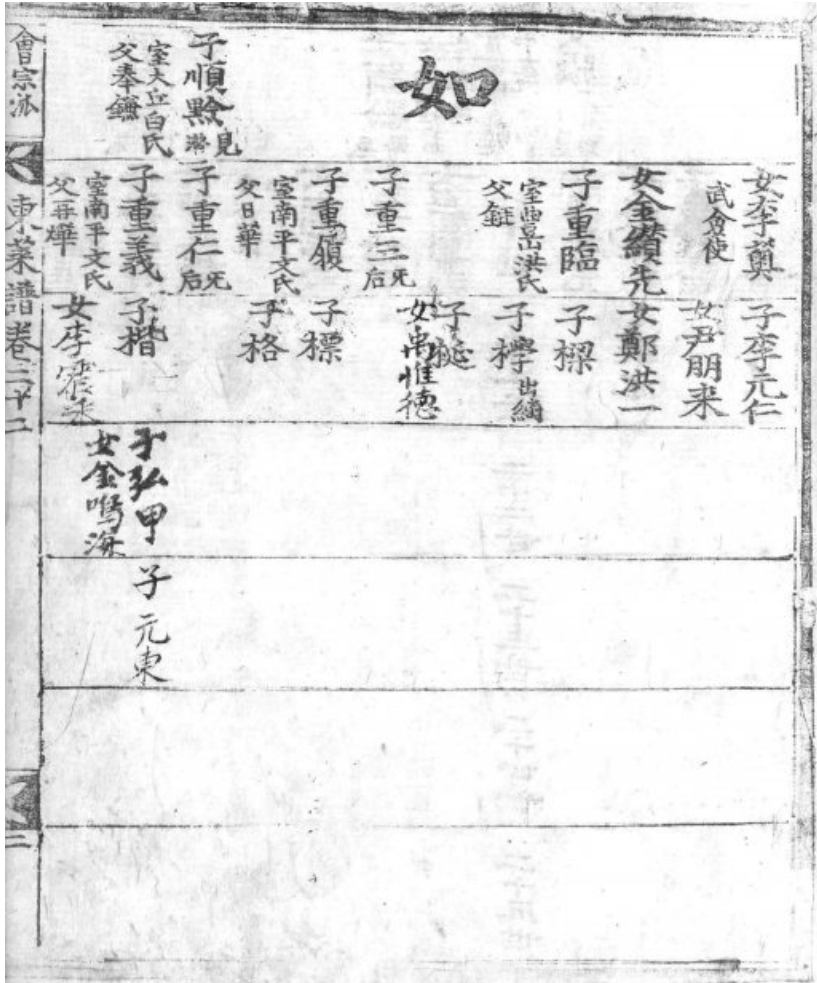 如
子順黔 見牒
室大丘白氏
父奉鑣
女李蕡
武僉使
女金纉先
子重臨
室豊山洪氏
父鋌
子重三 无后
子重嶺
室南平文氏
父日華
子重仁 无后
子重義
室南平文氏
父再燁
子李元仁
女尹朋来
女鄭洪一
子樑
子㰒 出繼
子梴
女禹惟德
子標
子格
子楷
女李
子弘甲
女金鳴海
子元東
會宗派
東萊譜卷二十二
二